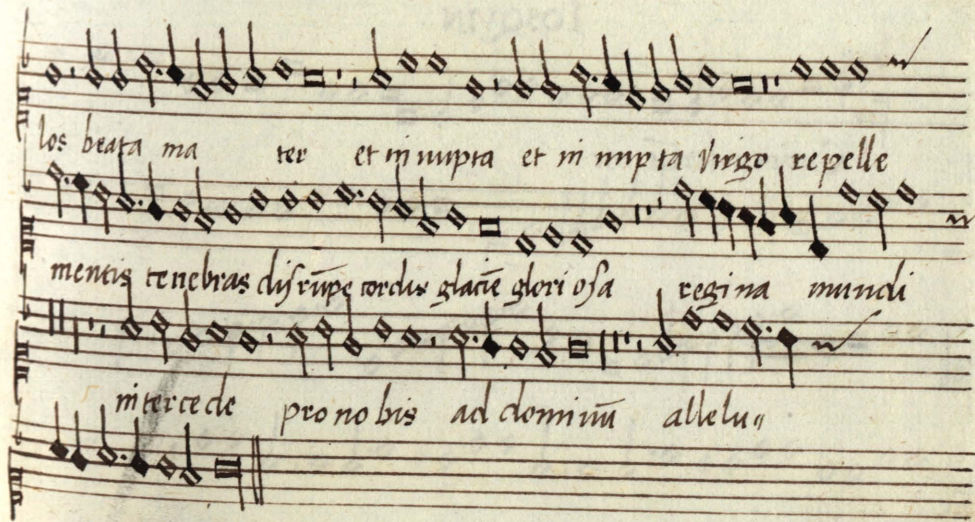 los beata ma ter et in nupta et in nupta virgo repelle
mentis tenebras disrūpe cordis glaciē glori osa regina mundi
intercede pro no bis ad dominū allelu〃